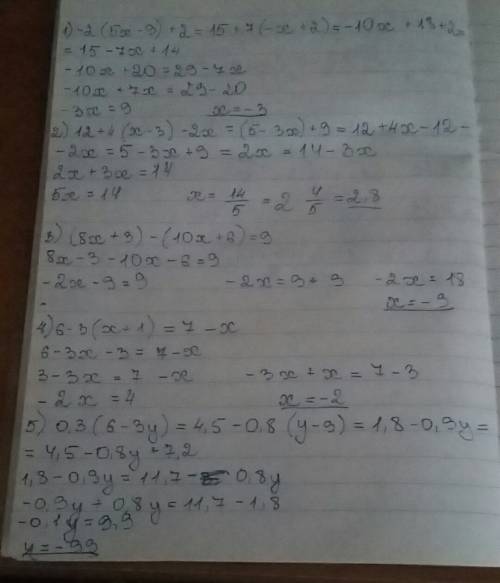 1) -2 (5x-9) +2 = 15 + 7 (-x+2) = -10x + 18 + 2 =
= 15 - 7x + 14
-10x + 20 = 29 - 7x
-10x + 7x = 29 - 20
-3x = 9 x = -3
2) 12 + 4 (x-3) - 2x = (5 - 3x) + 9 = 12 + 4x - 12 -
- 2x = 5 - 3x + 9 = 2x = 14 - 3x
2x + 3x = 14
5x = 14 x = 14/5 = 2 4/5 = 2,8
3) (8x + 3) - (10x + 6) = 9
8x - 3 - 10x - 6 = 9
-2x - 9 = 9 -2x = 9 + 9 -2x = 18
x = -9
4) 6 - 3 (x + 1) = 7 - x
6 - 3x - 3 = 7 - x
3 - 3x = 7 - x -3x + x = 7 - 3
-2x = 4 x = -2
5) 0,3 (6 - 3y) = 4,5 - 0,8 (y - 9) = 1,8 - 0,9y =
= 4,5 - 0,8y + 7,2
1,8 - 0,9y = 11,7 - 0,8y
-0,9y + 0,8y = 11,7 - 1,8
-0,1y = 9,9
y = -99